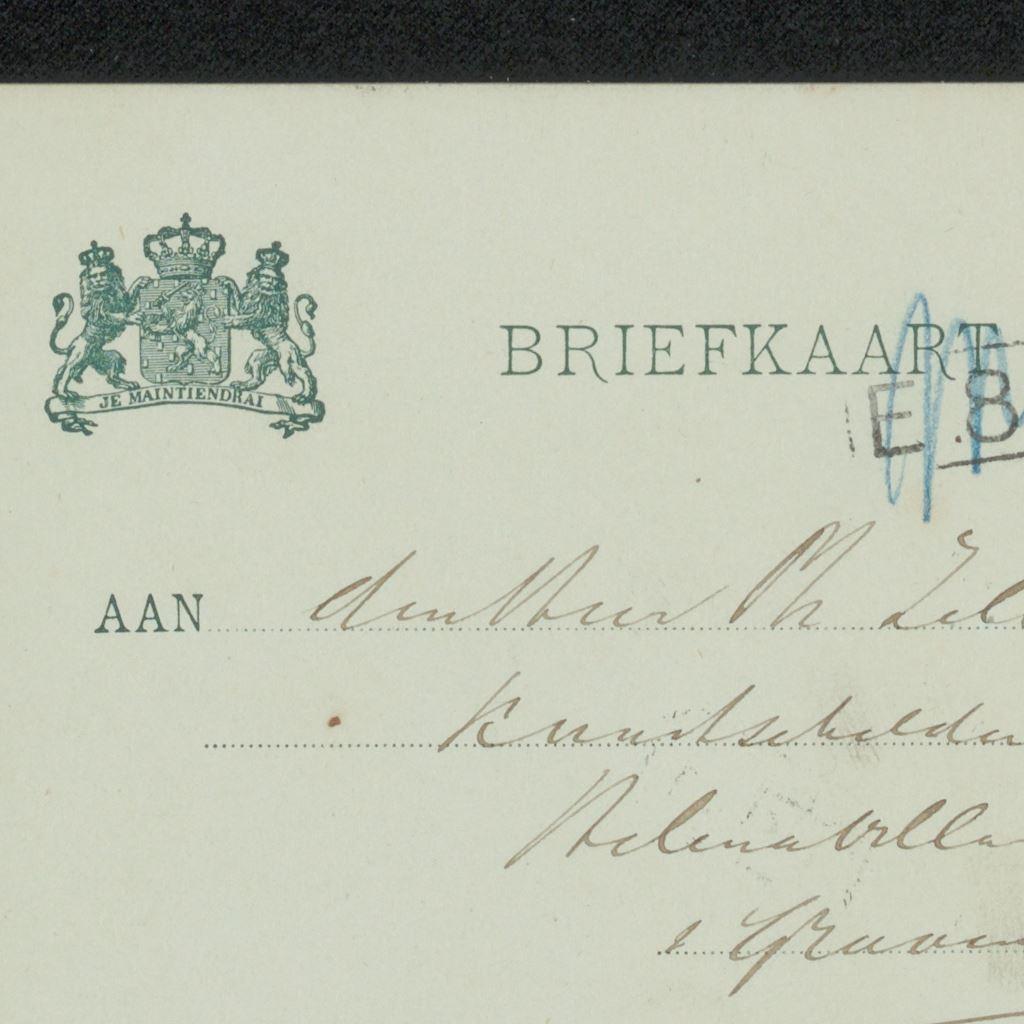 JE MAINTIENDRAI
BRIEFKAART
E.8
AAN den Heer Ph Zil
Kunstschilder
Helenavilla
s Graven